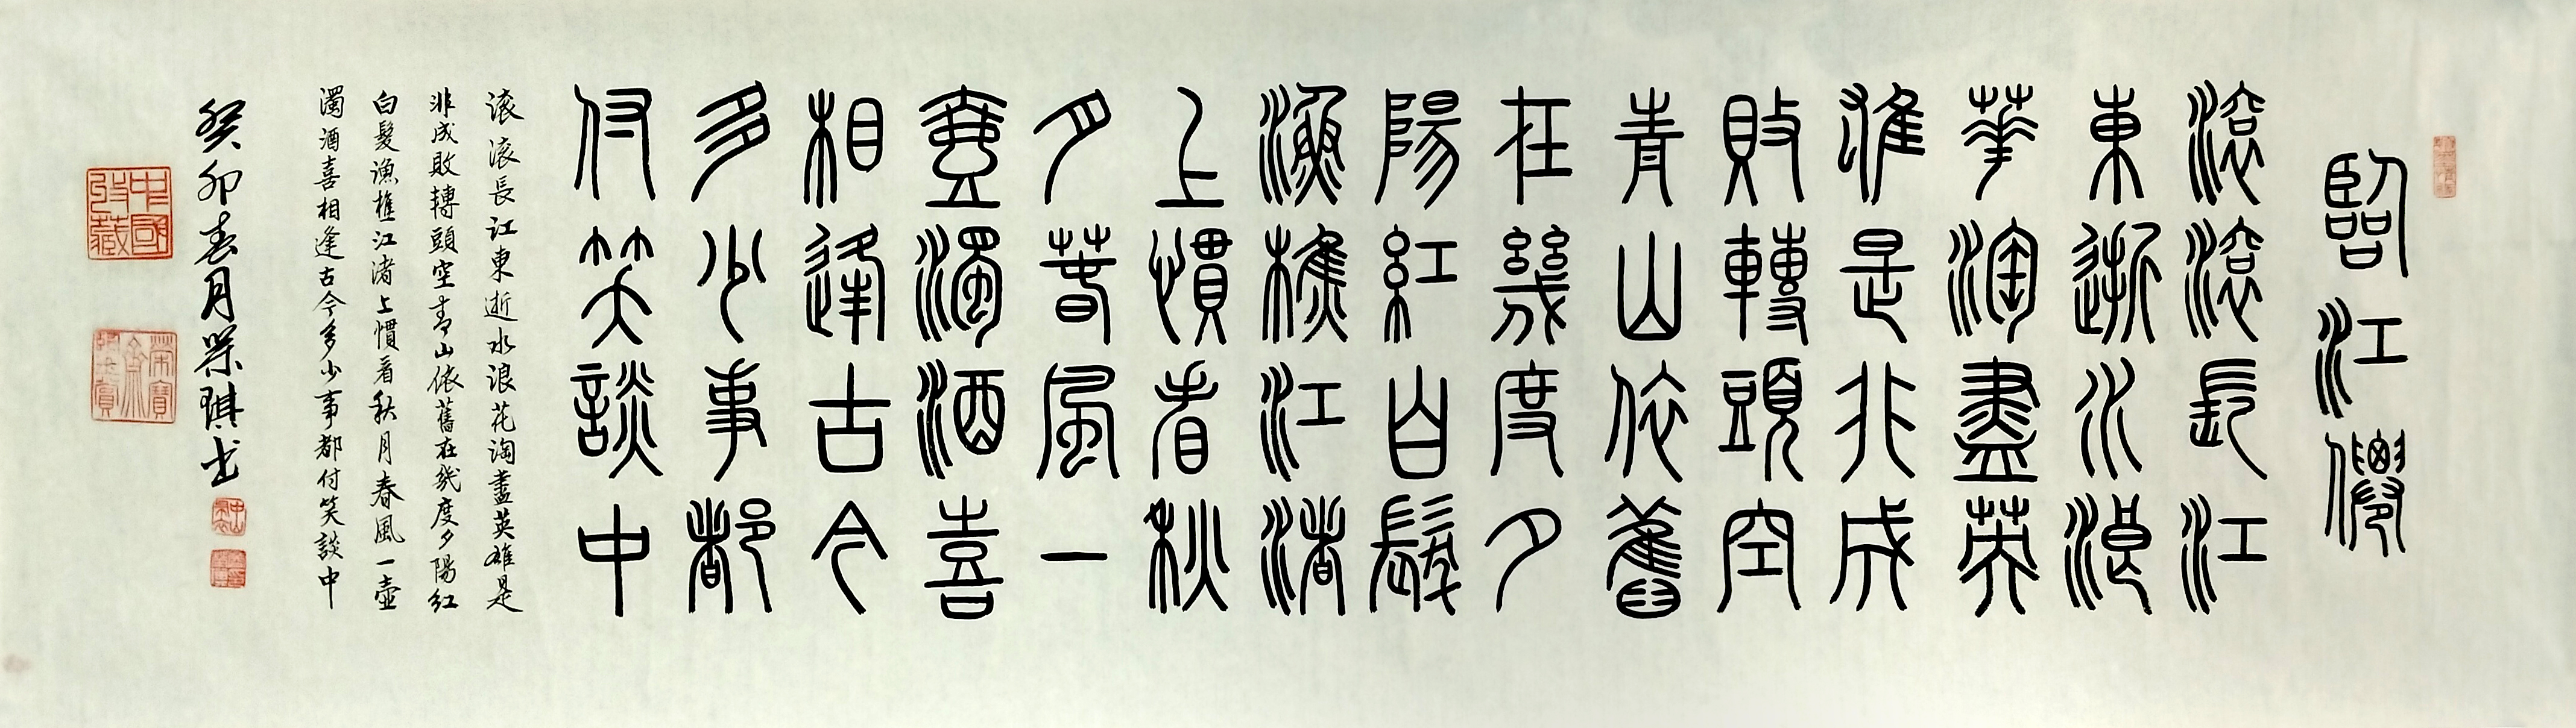 臨江僊
滾滾長江
東逝水浪
華淘盡英
雄是非成
敗轉頭空
青山依舊
在幾度夕
陽紅白髮
漁樵江渚
上慣看秋
月春風一
壺濁酒喜
相逢古今
多少事都
付笑談中
滾滾長江東逝水浪花淘盡英雄是
非成敗轉頭空青山依舊在幾度夕陽紅
白髮漁樵江渚上慣看秋月春風一壺
濁酒喜相逢古今多少事都付笑談中
癸卯春月琪书
中國收藏